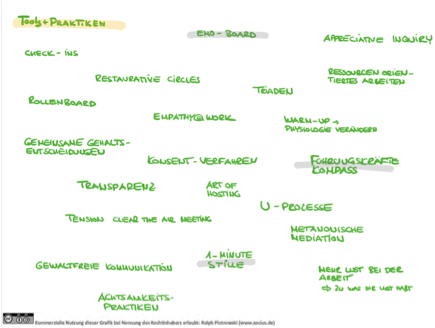 TOOLS + PRAKTIKEN
EMO - BOARD
APPRECIATIVE INQUIRY
CHECK - INS
RESTAURATIVE CIRCLES
RESSOURCEN ORIEN-
TIERTES ARBEITEN
TRIADEN
ROLLENBOARD
EMPATHY@WORK
WARM-UP →
PHYSIOLOGIE VERÄNDERN
GEMEINSAME GEHALTS-
ENTSCHEIDUNGEN
KONSENT - VERFAHREN
FÜHRUNGSKRÄFTE
KOMPASS
TRANSPARENZ
ART OF
HOSTING
U - PROZESSE
TENSION CLEAR THE AIR MEETING
METANOISCHE
MEDIATION
1-MINUTE
STILLE
GEWALTFREIE KOMMUNIKATION
MEHR LUST BEI DER
ARBEIT
⇒ ZU WAS IHR LUST HABT
ACHTSAMKEITS-
PRAKTIKEN
Kommerzielle Nutzung dieser Grafik bei Nennung des Rechtinhabers erlaubt: Ralph Piotrowski (www.socius.de)